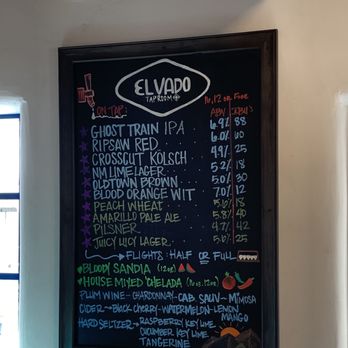 EL VADO
TAPROOM
ON TAP:
16, 12 oz,
ABV (IBU)
GHOST TRAIN IPA 6.9% 88
RIPSAW RED 6.0% 60
CROSSCUT KÖLSCH 4.9% 25
NM LIME LAGER 5.2% 18
OLDTOWN BROWN 5.0% 30
BLOOD ORANGE WIT 7.0% 12
PEACH WHEAT 5.6% 18
AMARILLO PALE ALE 5.8% 40
PILSNER 4.7% 42
JUICY LUCY LAGER 5.6% 25
FLIGHTS: HALF OR FULL
BLOODY SANDIA (12oz)
HOUSE MIXED CHELADA (16 oz, 12 oz)
PLUM WINE - CHARDONNAY - CAB SAUV - MIMOSA
CIDER → BLACK CHERRY - WATERMELON - LEMON
MANGO
HARD SELTZER → RASPBERRY KEY LIME
CUCUMBER KEY LIME
TANGERINE